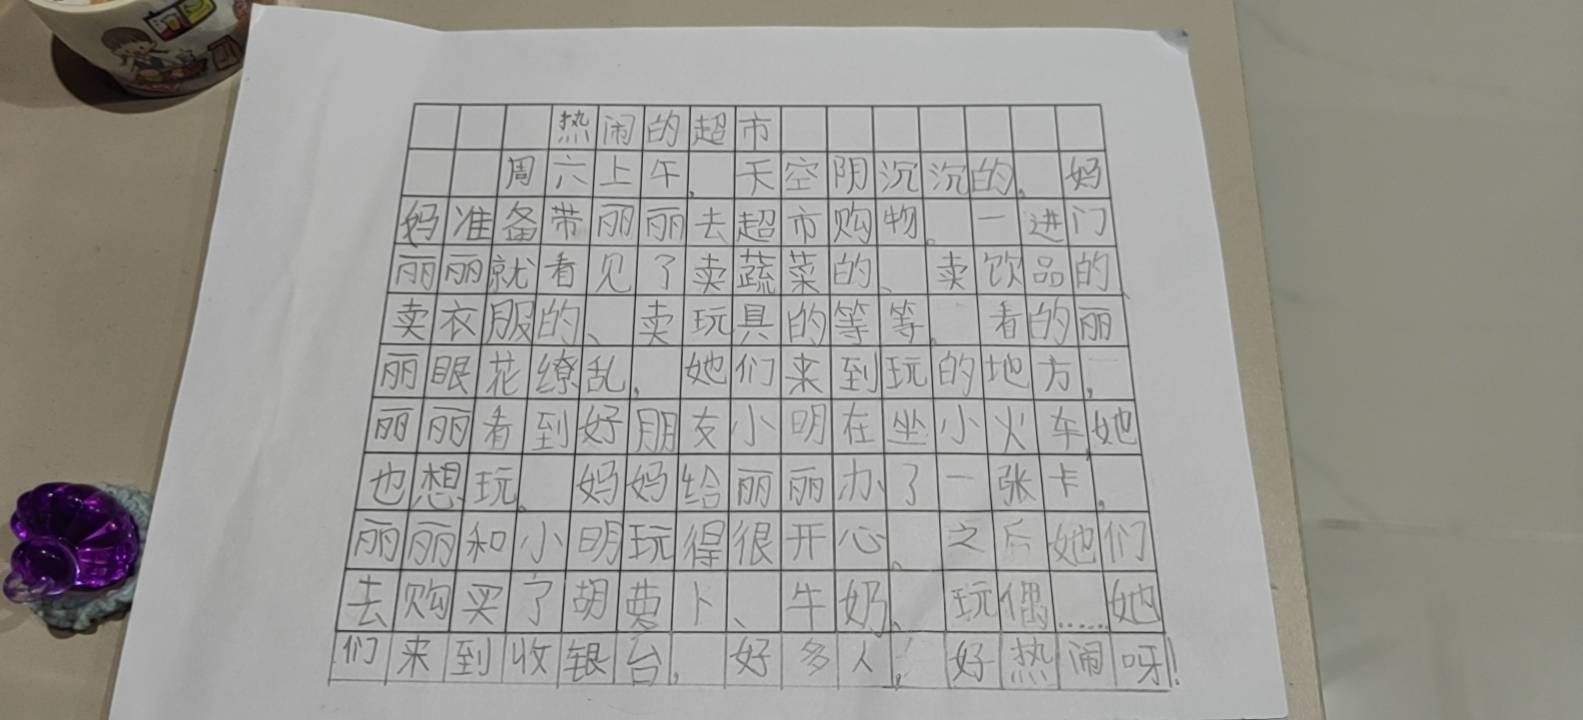 热闹的超市
周六上午，天空阴沉沉的，妈
妈准备带丽丽去超市购物。一进门
丽丽就看见了卖蔬菜的、卖饮品的、
卖衣服的、卖玩具的等等，看的丽
丽眼花缭乱，她们来到玩的地方，
丽丽看到好朋友小明在坐小火车，她
也想玩。妈妈给丽丽办了一张卡，
丽丽和小明玩得很开心。之后她们
去购买了胡萝卜、牛奶、玩偶……她
们来到收银台，好多人，好热闹呀！